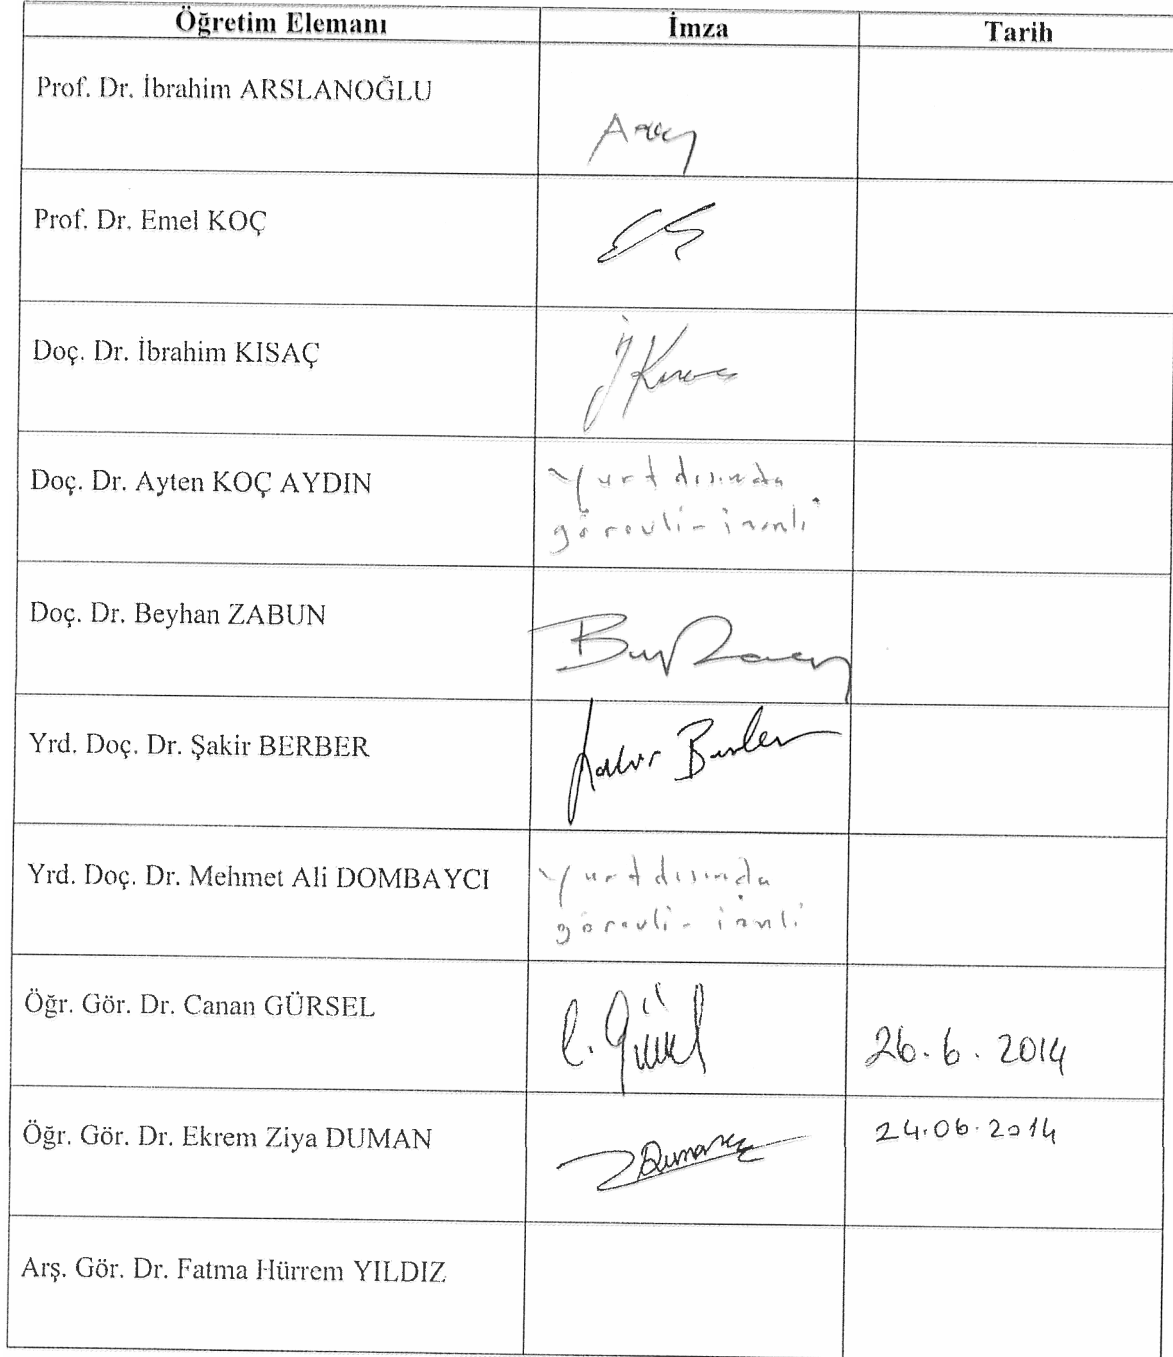 Öğretim Elemanı İmza Tarih
Prof. Dr. İbrahim ARSLANOĞLU
Prof. Dr. Emel KOÇ
Doç. Dr. İbrahim KISAÇ
Doç. Dr. Ayten KOÇ AYDIN
Yurt dışında
görevli-izinli
Doç. Dr. Beyhan ZABUN
Yrd. Doç. Dr. Şakir BERBER
Yrd. Doç. Dr. Mehmet Ali DOMBAYCI
Yurt dışında
görevli-izinli
Öğr. Gör. Dr. Canan GÜRSEL
26.6.2014
Öğr. Gör. Dr. Ekrem Ziya DUMAN
24.06.2014
Arş. Gör. Dr. Fatma Hürrem YILDIZ